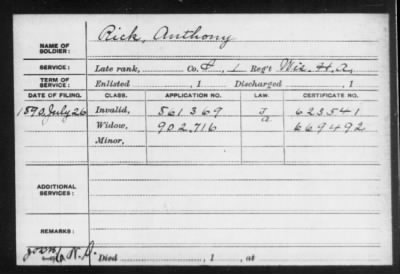 Rick, Anthony
NAME OF SOLDIER:
SERVICE: Late rank, Co. F, 1 Reg't Wis. H.A.
TERM OF SERVICE: Enlisted , 1 Discharged , 1
DATE OF FILING. CLASS. APPLICATION NO. LAW. CERTIFICATE NO.
1890, July 26 Invalid, 561369 J 623541
Widow, 902,716 669492
Minor,
ADDITIONAL SERVICES:
REMARKS:
Died , 1 , at